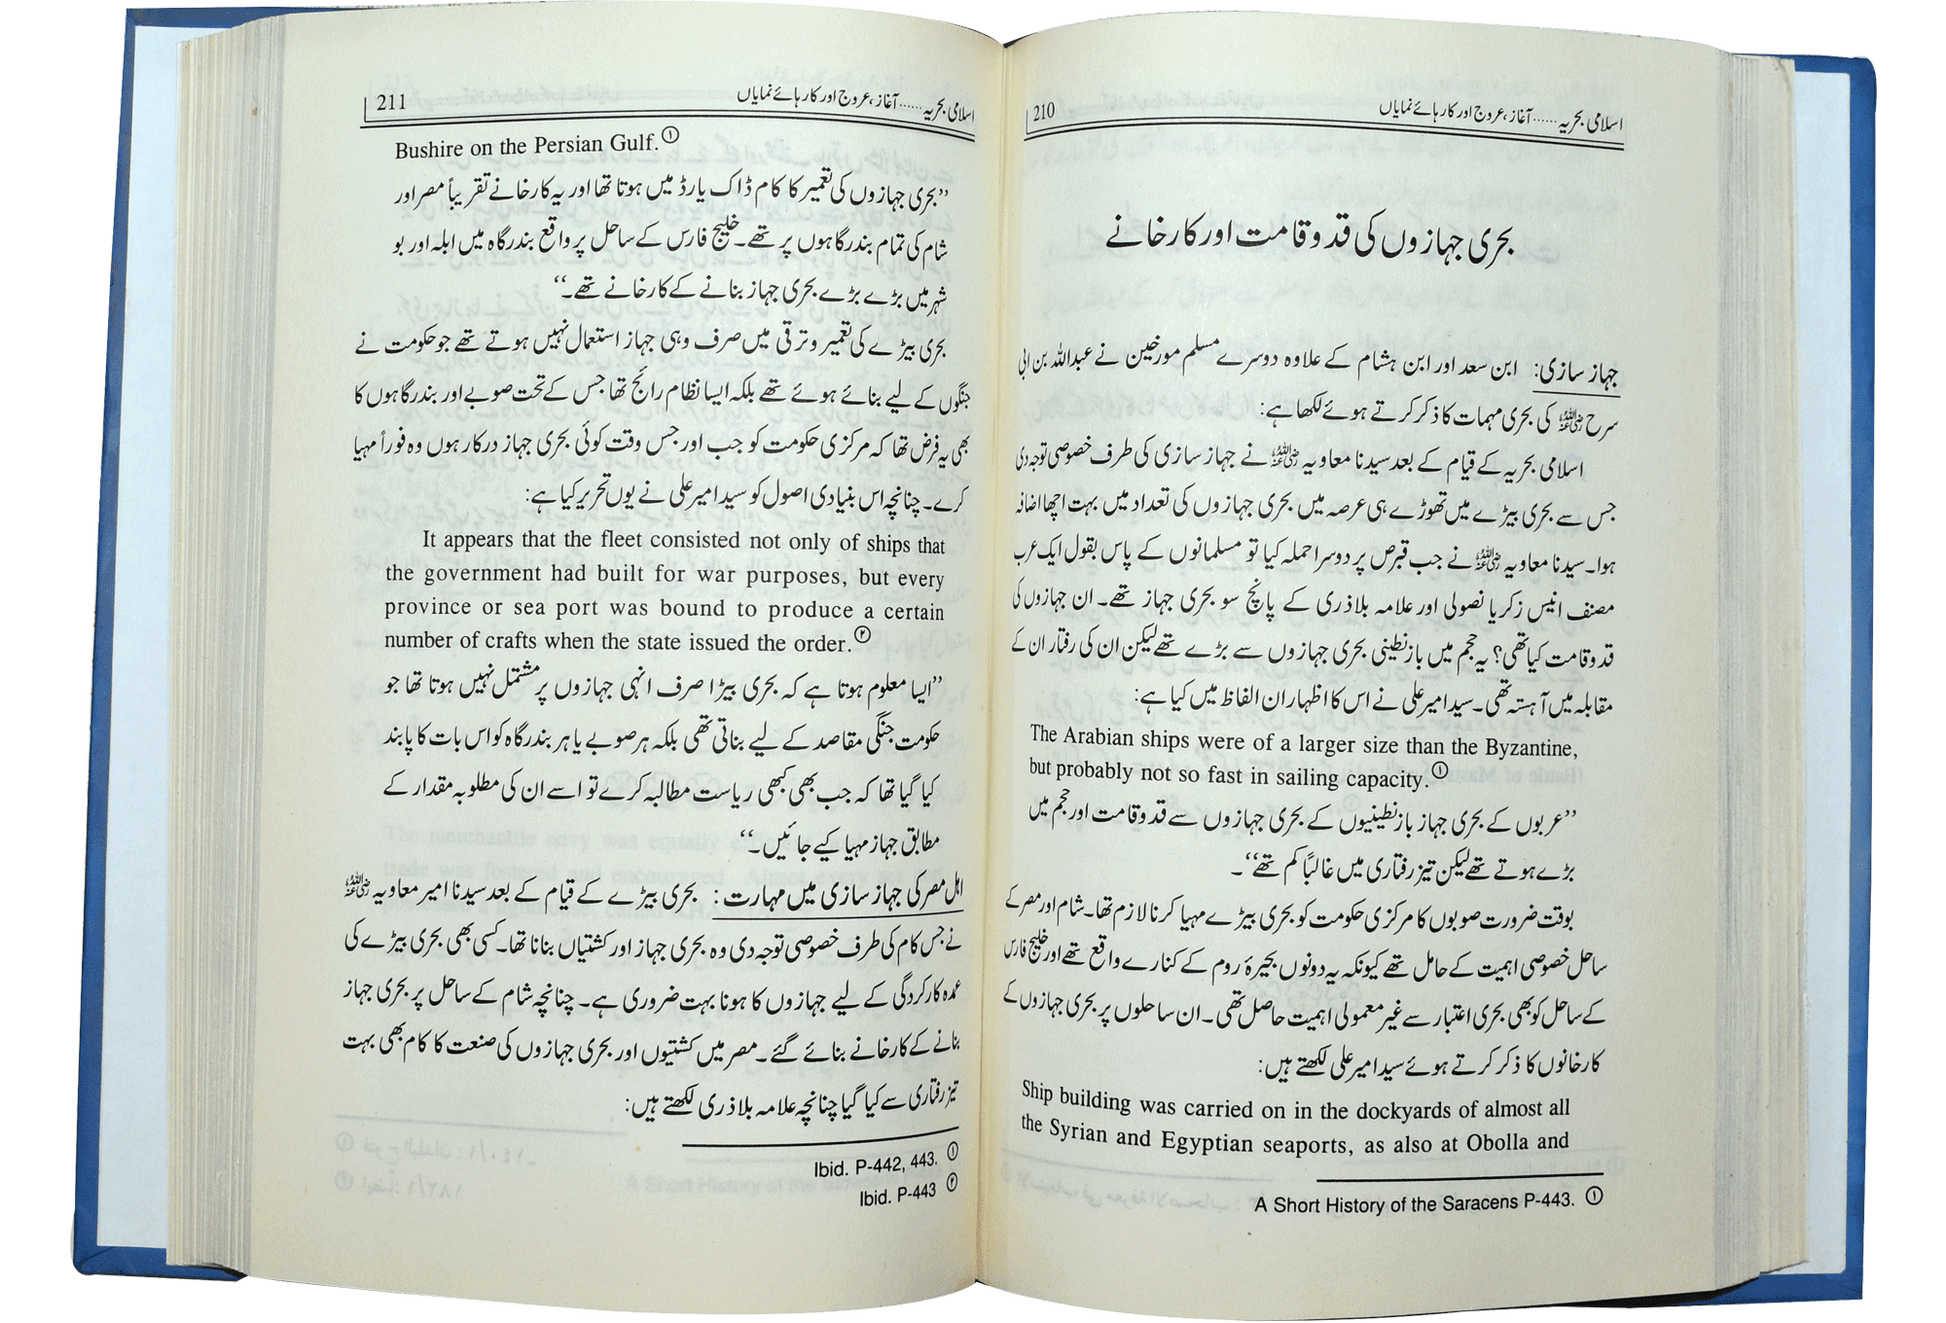 اسلامی بحریہ......آغاز، عروج اور کارہائے نمایاں
210
بحری جہازوں کی قد و قامت اور کارخانے
جہاز سازی: ابن سعد اور ابن ہشام کے علاوہ دوسرے مسلم مورخین نے عبداللہ بن ابی
سرح رضی اللہ عنہ کی بحری مہمات کا ذکر کرتے ہوئے لکھا ہے:
اسلامی بحریہ کے قیام کے بعد سیدنا معاویہ رضی اللہ عنہ نے جہاز سازی کی طرف خصوصی توجہ دی
جس سے بحری بیڑے میں تھوڑے ہی عرصہ میں بحری جہازوں کی تعداد میں بہت اچھا اضافہ
ہوا۔ سیدنا معاویہ رضی اللہ عنہ نے جب قبرص پر دوسرا حملہ کیا تو مسلمانوں کے پاس بقول ایک عرب
مصنف انیس زکریا نصولی اور علامہ بلاذری کے پانچ سو بحری جہاز تھے۔ ان جہازوں کی
قد و قامت کیا تھی؟ یہ حجم میں بازنطینی بحری جہازوں سے بڑے تھے لیکن ان کی رفتار ان کے
مقابلہ میں آہستہ تھی۔ سید امیر علی نے اس کا اظہار ان الفاظ میں کیا ہے:
The Arabian ships were of a larger size than the Byzantine,
but probably not so fast in sailing capacity.①
’’عربوں کے بحری جہاز بازنطینیوں کے بحری جہازوں سے قد و قامت اور حجم میں
بڑے ہوتے تھے لیکن تیز رفتاری میں غالباً کم تھے‘‘۔
بوقت ضرورت صوبوں کا مرکزی حکومت کو بحری بیڑے مہیا کرنا لازم تھا۔ شام اور مصر کے
ساحل خصوصی اہمیت کے حامل تھے کیونکہ یہ دونوں بحیرۂ روم کے کنارے واقع تھے اور خلیج فارس
کے ساحل کو بھی بحری اعتبار سے غیر معمولی اہمیت حاصل تھی۔ ان ساحلوں پر بحری جہازوں کے
کارخانوں کا ذکر کرتے ہوئے سید امیر علی لکھتے ہیں:
Ship building was carried on in the dockyards of almost all
the Syrian and Egyptian seaports, as also at Obolla and
① A Short History of the Saracens P-443.
اسلامی بحریہ......آغاز، عروج اور کارہائے نمایاں
211
Bushire on the Persian Gulf.①
’’بحری جہازوں کی تعمیر کا کام ڈاک یارڈ میں ہوتا تھا اور یہ کارخانے تقریباً مصر اور
شام کی تمام بندرگاہوں پر تھے۔ خلیج فارس کے ساحل پر واقع بندرگاہ میں ابلہ اور بو
شہر میں بڑے بڑے بحری جہاز بنانے کے کارخانے تھے۔‘‘
بحری بیڑے کی تعمیر و ترقی میں صرف وہی جہاز استعمال نہیں ہوتے تھے جو حکومت نے
جنگوں کے لیے بنائے ہوئے تھے بلکہ ایسا نظام رائج تھا جس کے تحت صوبے اور بندرگاہوں کا
بھی یہ فرض تھا کہ مرکزی حکومت کو جب اور جس وقت کوئی بحری جہاز درکار ہوں وہ فوراً مہیا
کرے۔ چنانچہ اس بنیادی اصول کو سید امیر علی نے یوں تحریر کیا ہے:
It appears that the fleet consisted not only of ships that
the government had built for war purposes, but every
province or sea port was bound to produce a certain
number of crafts when the state issued the order.②
’’ایسا معلوم ہوتا ہے کہ بحری بیڑا صرف انہی جہازوں پر مشتمل نہیں ہوتا تھا جو
حکومت جنگی مقاصد کے لیے بناتی تھی بلکہ ہر صوبے یا ہر بندرگاہ کو اس بات کا پابند
کیا گیا تھا کہ جب بھی کبھی ریاست مطالبہ کرے تو اسے ان کی مطلوبہ مقدار کے
مطابق جہاز مہیا کیے جائیں۔‘‘
اہل مصر کی جہاز سازی میں مہارت: بحری بیڑے کے قیام کے بعد سیدنا امیر معاویہ رضی اللہ عنہ
نے جس کام کی طرف خصوصی توجہ دی وہ بحری جہاز اور کشتیاں بنانا تھا۔ کسی بھی بحری بیڑے کی
عمدہ کارکردگی کے لیے جہازوں کا ہونا بہت ضروری ہے۔ چنانچہ شام کے ساحل پر بحری جہاز
بنانے کے کارخانے بنائے گئے۔ مصر میں کشتیوں اور بحری جہازوں کی صنعت کا کام بھی بہت
تیز رفتاری سے کیا گیا چنانچہ علامہ بلاذری لکھتے ہیں:
① Ibid. P-442, 443.
② Ibid. P-443